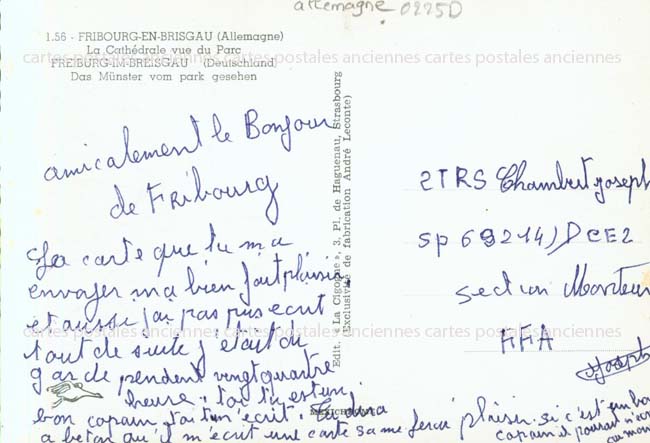 allemagne 0225D
1.56 - FRIBOURG-EN-BRISGAU (Allemagne)
La Cathédrale vue du Parc
cartes postales anciennes cartes postales anciennes cartes postales anciennes
FREIBURG-IM-BREISGAU (Deutschland)
Das Münster vom park gesehen
Edit. « La Cigogne », 3, Pl. de Haguenau, Strasbourg
(Exclusivité de fabrication André Leconte)
amicalement le Bonjour
de FRibourg
La carte que tu m a
envoyer m a bien fait plaisir
et aussi j'ai pas puis ecrit
tout de suite j'était de
garde pendent vingt quattre
heure. toi tu est un
bon copain, toi tu m'ecrit.
a betan qu'il m'écrit une carte sa me ferai plaisir. si c'est un bon
copain il pourait
2TRS Chambert joseph
SP 69214) DCE2
section Monteur
FFA
Joseph
cartes postales anciennes cartes postales anciennes cartes postales anciennes
MEXICHROME